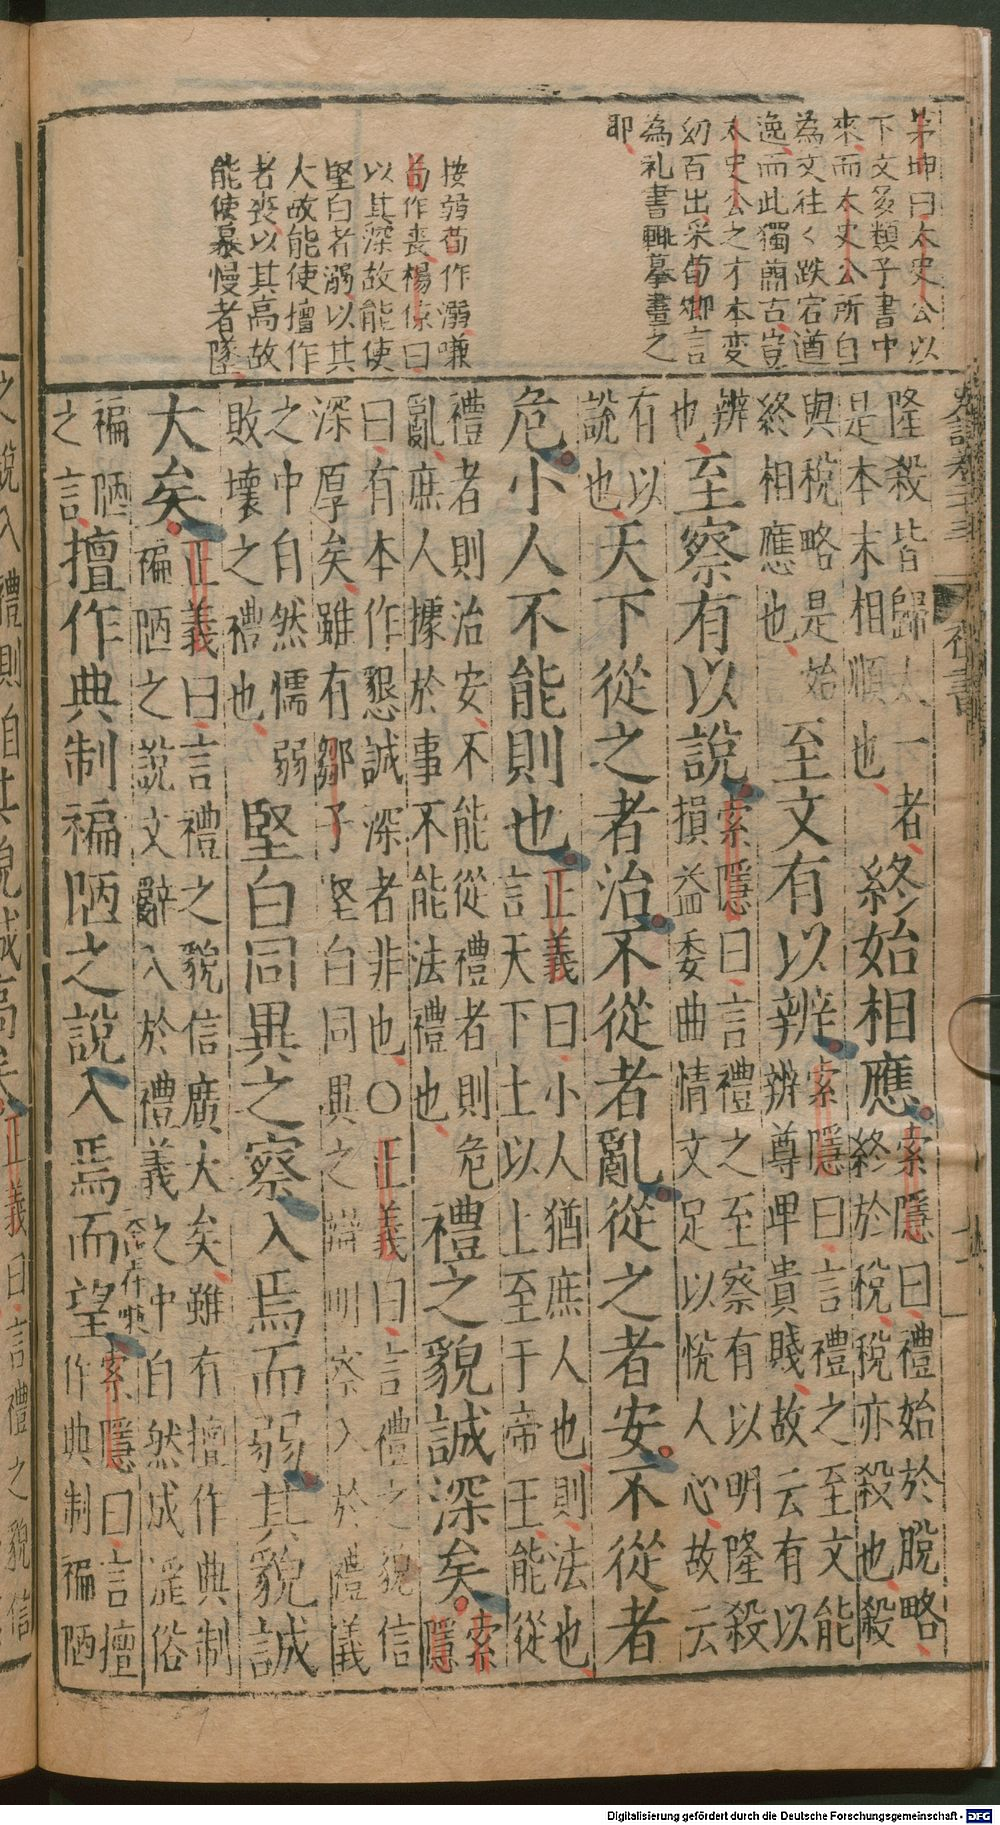 茅坤曰太史公以
下文多類子書中
來而太史公所自
為文往〻跌宕遒
逸而此獨蕳古豈
太史公之才本変
幻百出采荀卿言
為礼書輒摹畫之
耶
按弱荀作溺嗛
荀作喪楊倞曰
以其深故能使
堅白者溺以其
大故能使擅作
者喪以其高故
能使暴慢者墜
隆殺皆歸太一者終始相應索隱曰禮始於脫略
是本末相順也終於稅稅亦殺也殺
與稅略是始至文有以辨索隱曰言禮之至文能
終相應也辨尊卑貴賤故云有以
辨至察有以說索隱曰言禮之至察有以明隆殺
也損益委曲情文足以悅人心故云
有以天下從之者治不從者亂從之者安不從者
說也
危小人不能則也正義曰小人猶庶人也則法也
言天下士以上至于帝王能從
禮者則治安不能從禮者則危禮之貌誠深矣索
亂庶人據於事不能法禮也隱
曰有本作懇誠深者非也○正義曰言禮之貌信
深厚矣雖有鄒子堅白同異之辯明察入於禮義
之中自然懦弱堅白同異之察入焉而弱其貌誠
敗壞之禮也
大矣正義曰言禮之貌信廣大矣雖有擅作典制
褊陋之說文辭入於禮義之中自然成淫俗
褊陋擅作典制褊陋之說入焉而望索隱曰言擅
之言作典制褊陋
史記卷二十三
禮書
Digitalisierung gefördert durch die Deutsche Forschungsgemeinschaft - DFG